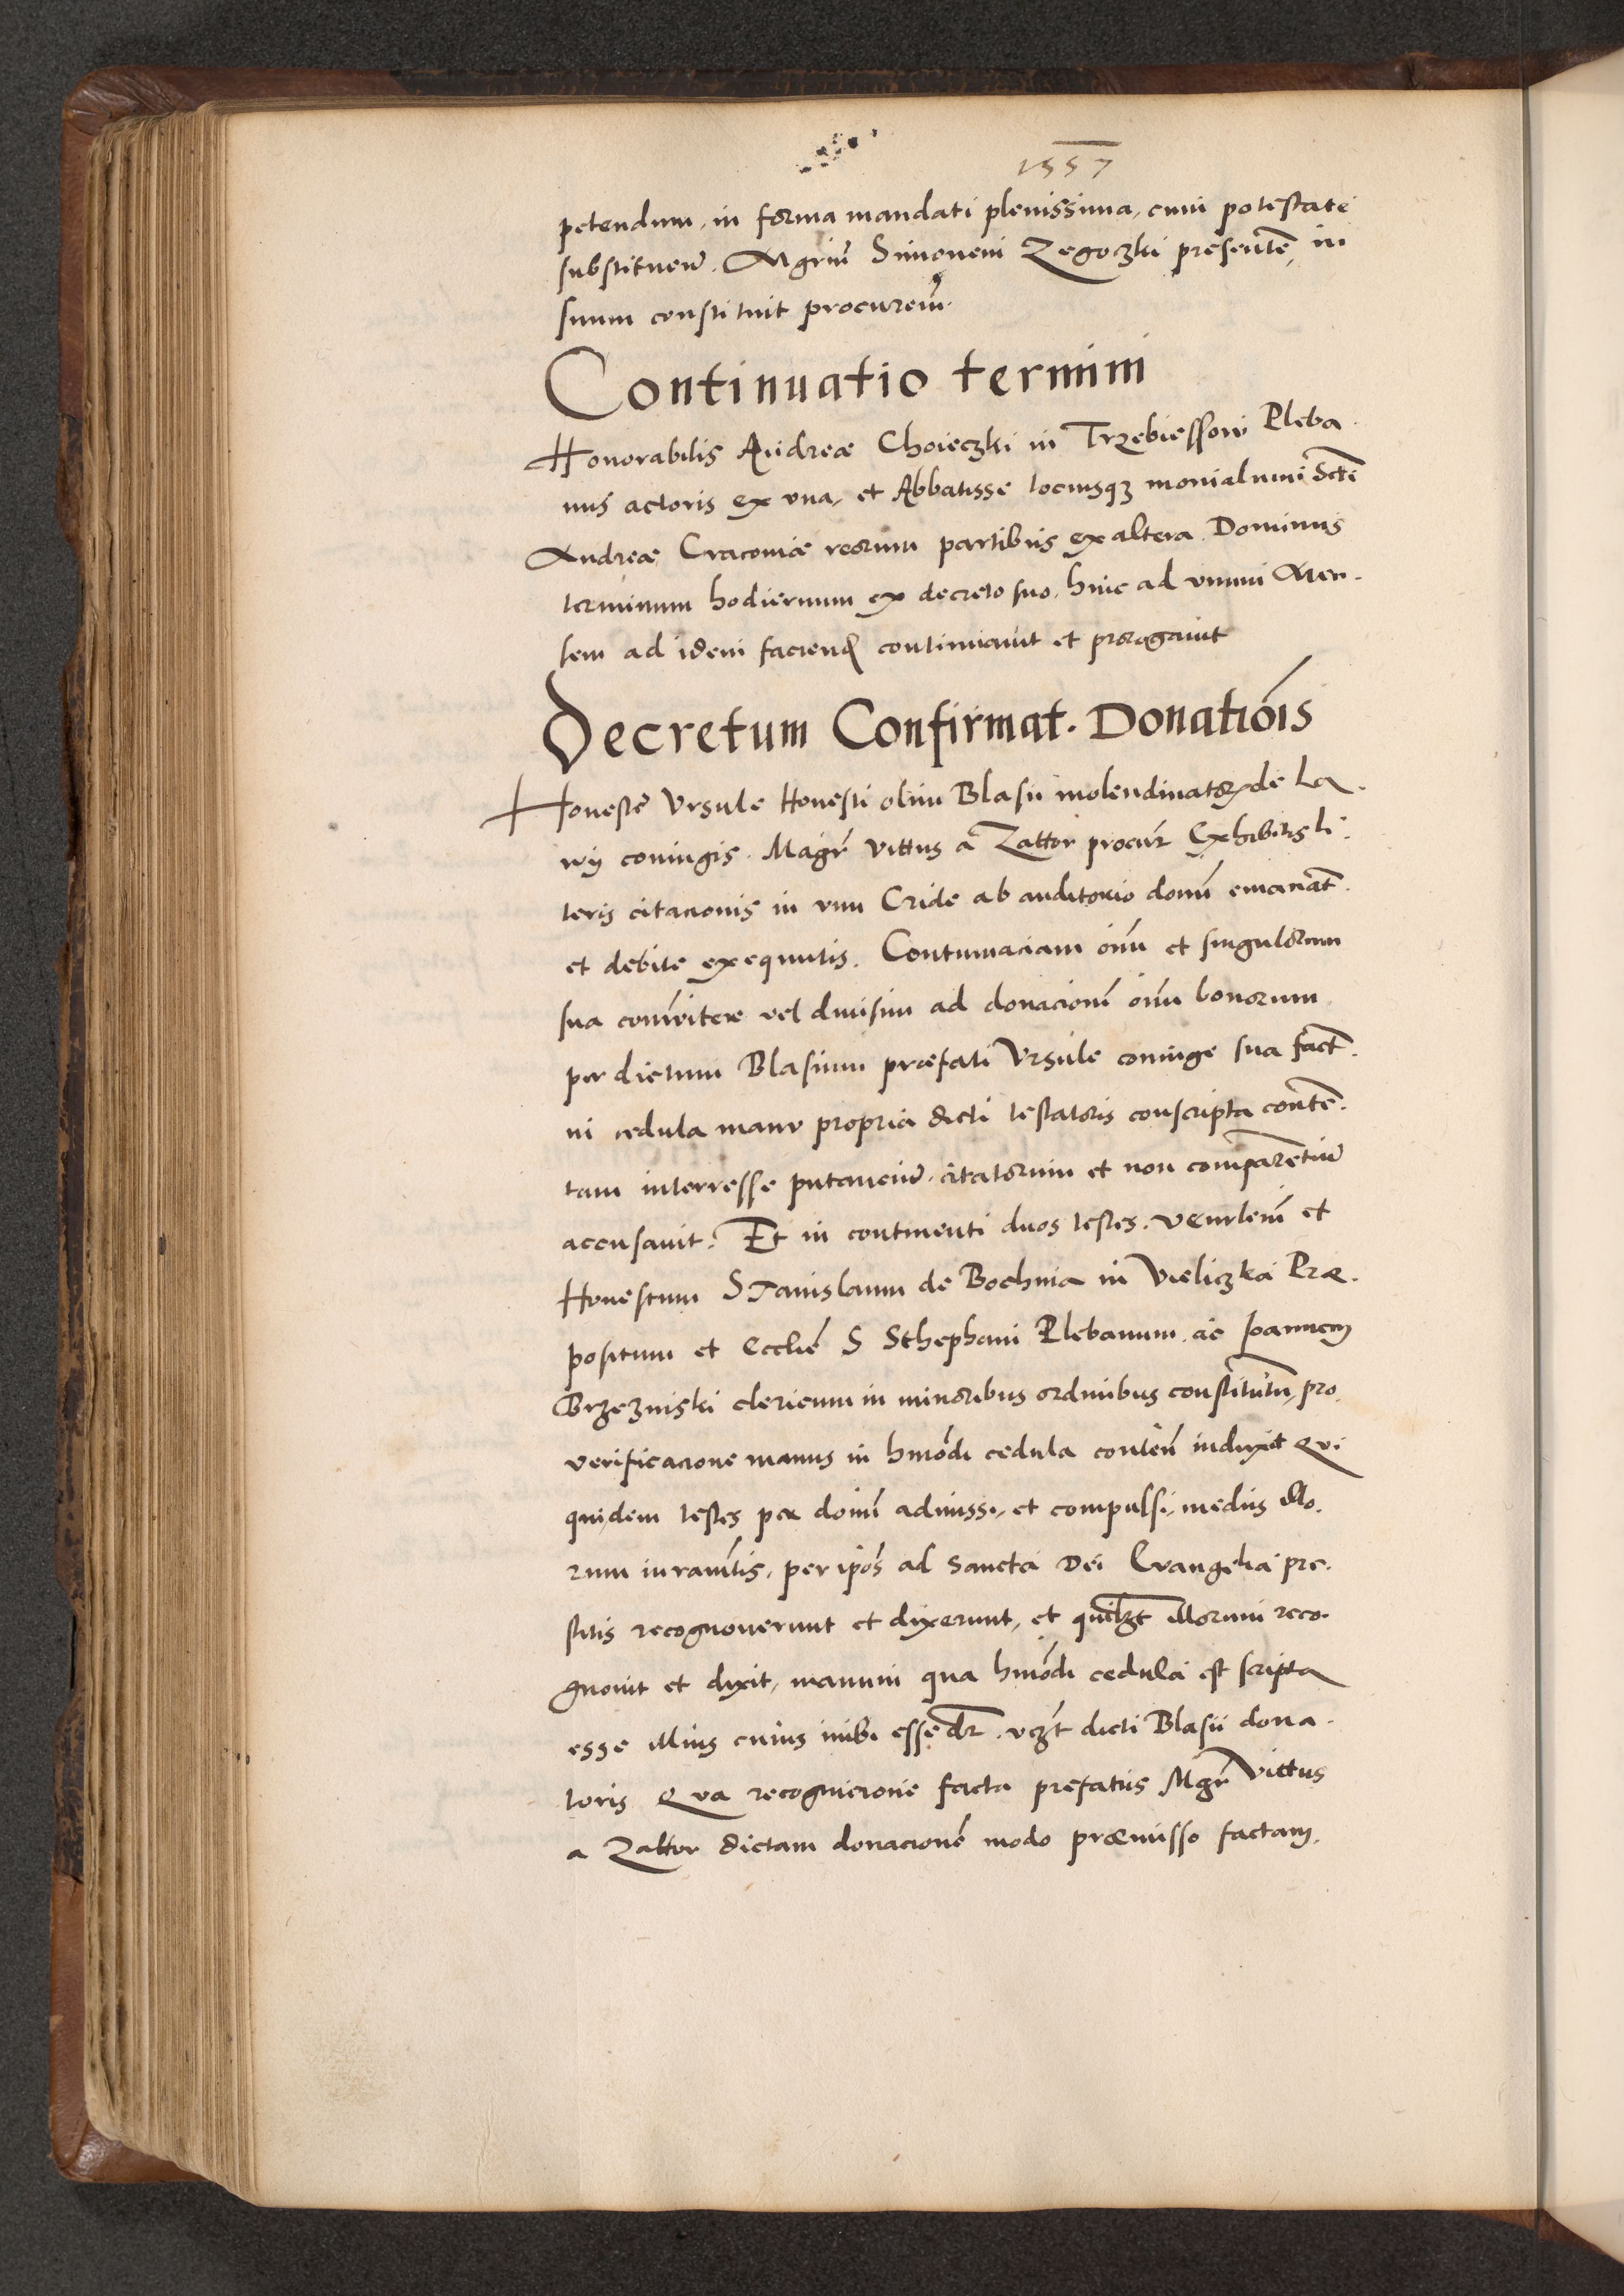 1557
petendum, in forma mandati plenissima, cum potestate
substituen̄. Mgrum̄ Simonem Zegoczki presentē, in
suum constituit procurem̄.
Continuatio termini
Honorabilis Andreæ Choieczki in Trzebiessow Pleba.
nus actoris ex vna, et Abbatisse tociusqz monialium Scti
Andreæ Cracoviæ reorum partibus ex altera Dominus
terminum hodiernum ex decreto suo, hinc ad vnum Men.
sem ad idem faciend continuavit et prorogavit
Decretum Confirmat. Donatiōis
Honeste Vrsule Honesti olim Blasii molendinator de La.
wy coniugis. Magr̄ Vittus a Zattor procur̄ Exhibitis li.
teris citacionis in vim Cride ab auditorio domī emanat̄.
et debite exequutis. Contumaciam oīm et singulorum
sua comūiter vel diuisim ad donacionē oīm bonorum
per dictum Blasium præfati Vrsule coniuge sua fact̄.
in cedula manu propria dicti testatoris conscripta conten̄.
tam interresse putancium̄. citatorum et non comparentiū
accusavit. Et in continenti duos testes. Ven̄lem̄ et
Honestum Stanislaum de Bochnia in Vieliczka Præ.
positum et Eccliē S Sthephani Plebanum, ac Joannem
Brzezniski clericum in minoribus ordinibus constitutū, pro
verificacione manus in hmōdi cedula conten̄ induxit Qui
quidem testes per domī admissi, et compulsi, mediis illo.
rum iuramētis, per ipōs ad Sancta Dei Evangelia pre.
stitis recognouerunt et dixerunt, et quilibet illorum reco.
gnouit et dixit, manum qua hmōdi cedula est scripta
esse illius cuius inibi esse dr̄. vzt dicti Blasii dona.
toris Qva recognicione facta prefatus Mgr̄ Vittus
a Zattor dictam donacionē modo præmisso factam.